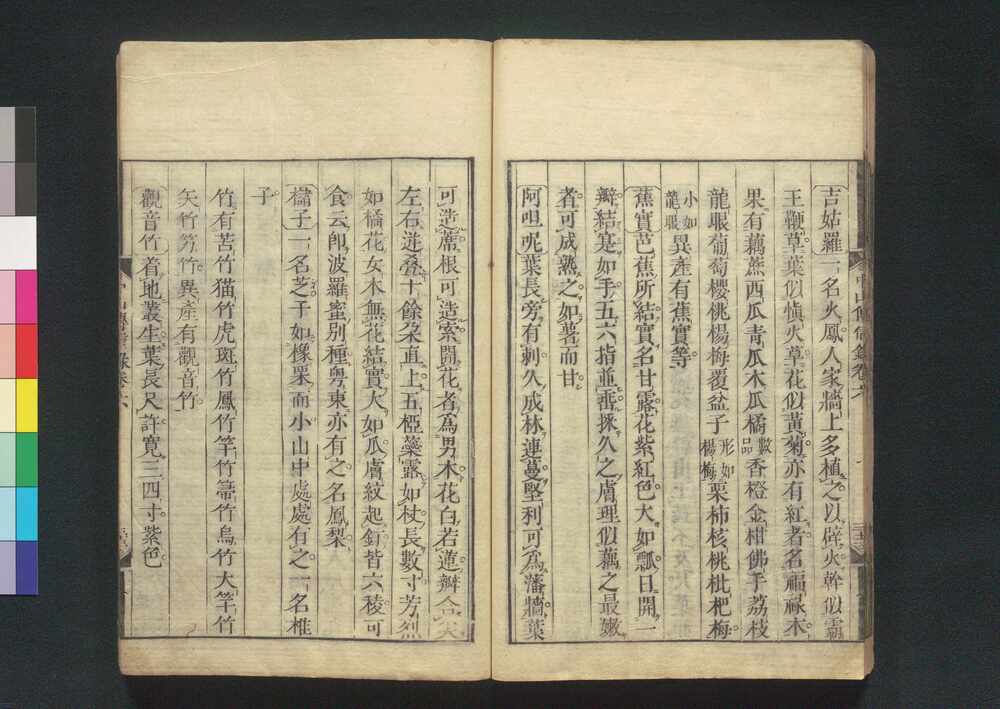 吉姑羅一名火鳳人家牆上多植之以辟火幹似霸
王鞭草葉似愼火草花似黃菊亦有紅者名福祿木
果有藕蔗西瓜青瓜木瓜橘數品香橙金柑佛手荔枝
龍眼葡萄櫻桃楊梅覆盆子形如楊梅栗柿核桃枇杷梅
小如龍眼異產有蕉實等
蕉實芭蕉所結實名甘露花紫紅色大如瓢日開一
瓣結寔如手五六指並垂採久之膚理似藕之最嫩
者可成熟之如薯而甘
阿呾呢葉長旁有刺久成林連蔓堅利可爲藩牆葉
可造席根可造索開花者爲男木花白若蓮瓣合尖
左右迸疊十餘朶直上五椏蘂露如杖長數寸芳烈
如橘花女木無花結實大如瓜膚紋起釘皆六稜可
食云卽波羅蜜別種粤東亦有之名鳳梨
櫧子一名芝子如橡栗而小山中處處有之一名椎
子
竹有苦竹猫竹虎斑竹鳳竹竿竹籌竹烏竹大竿竹
矢竹笏竹異產有觀音竹
觀音竹着地叢生葉長尺許寬三四寸紫色